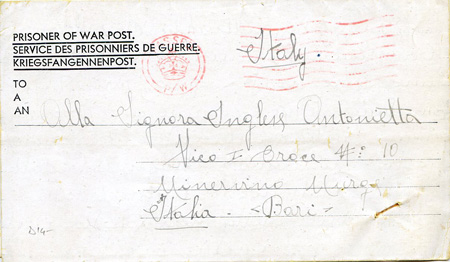 PRISONER OF WAR POST.
SERVICE DES PRISONNIERS DE GUERRE.
KRIEGSFANGENNENPOST.
Italy.
TO
A
AN
Alla Signora Inglese Antonietta
Vico I- Croce N: 10
Minervino Murge
Italia - <Bari>